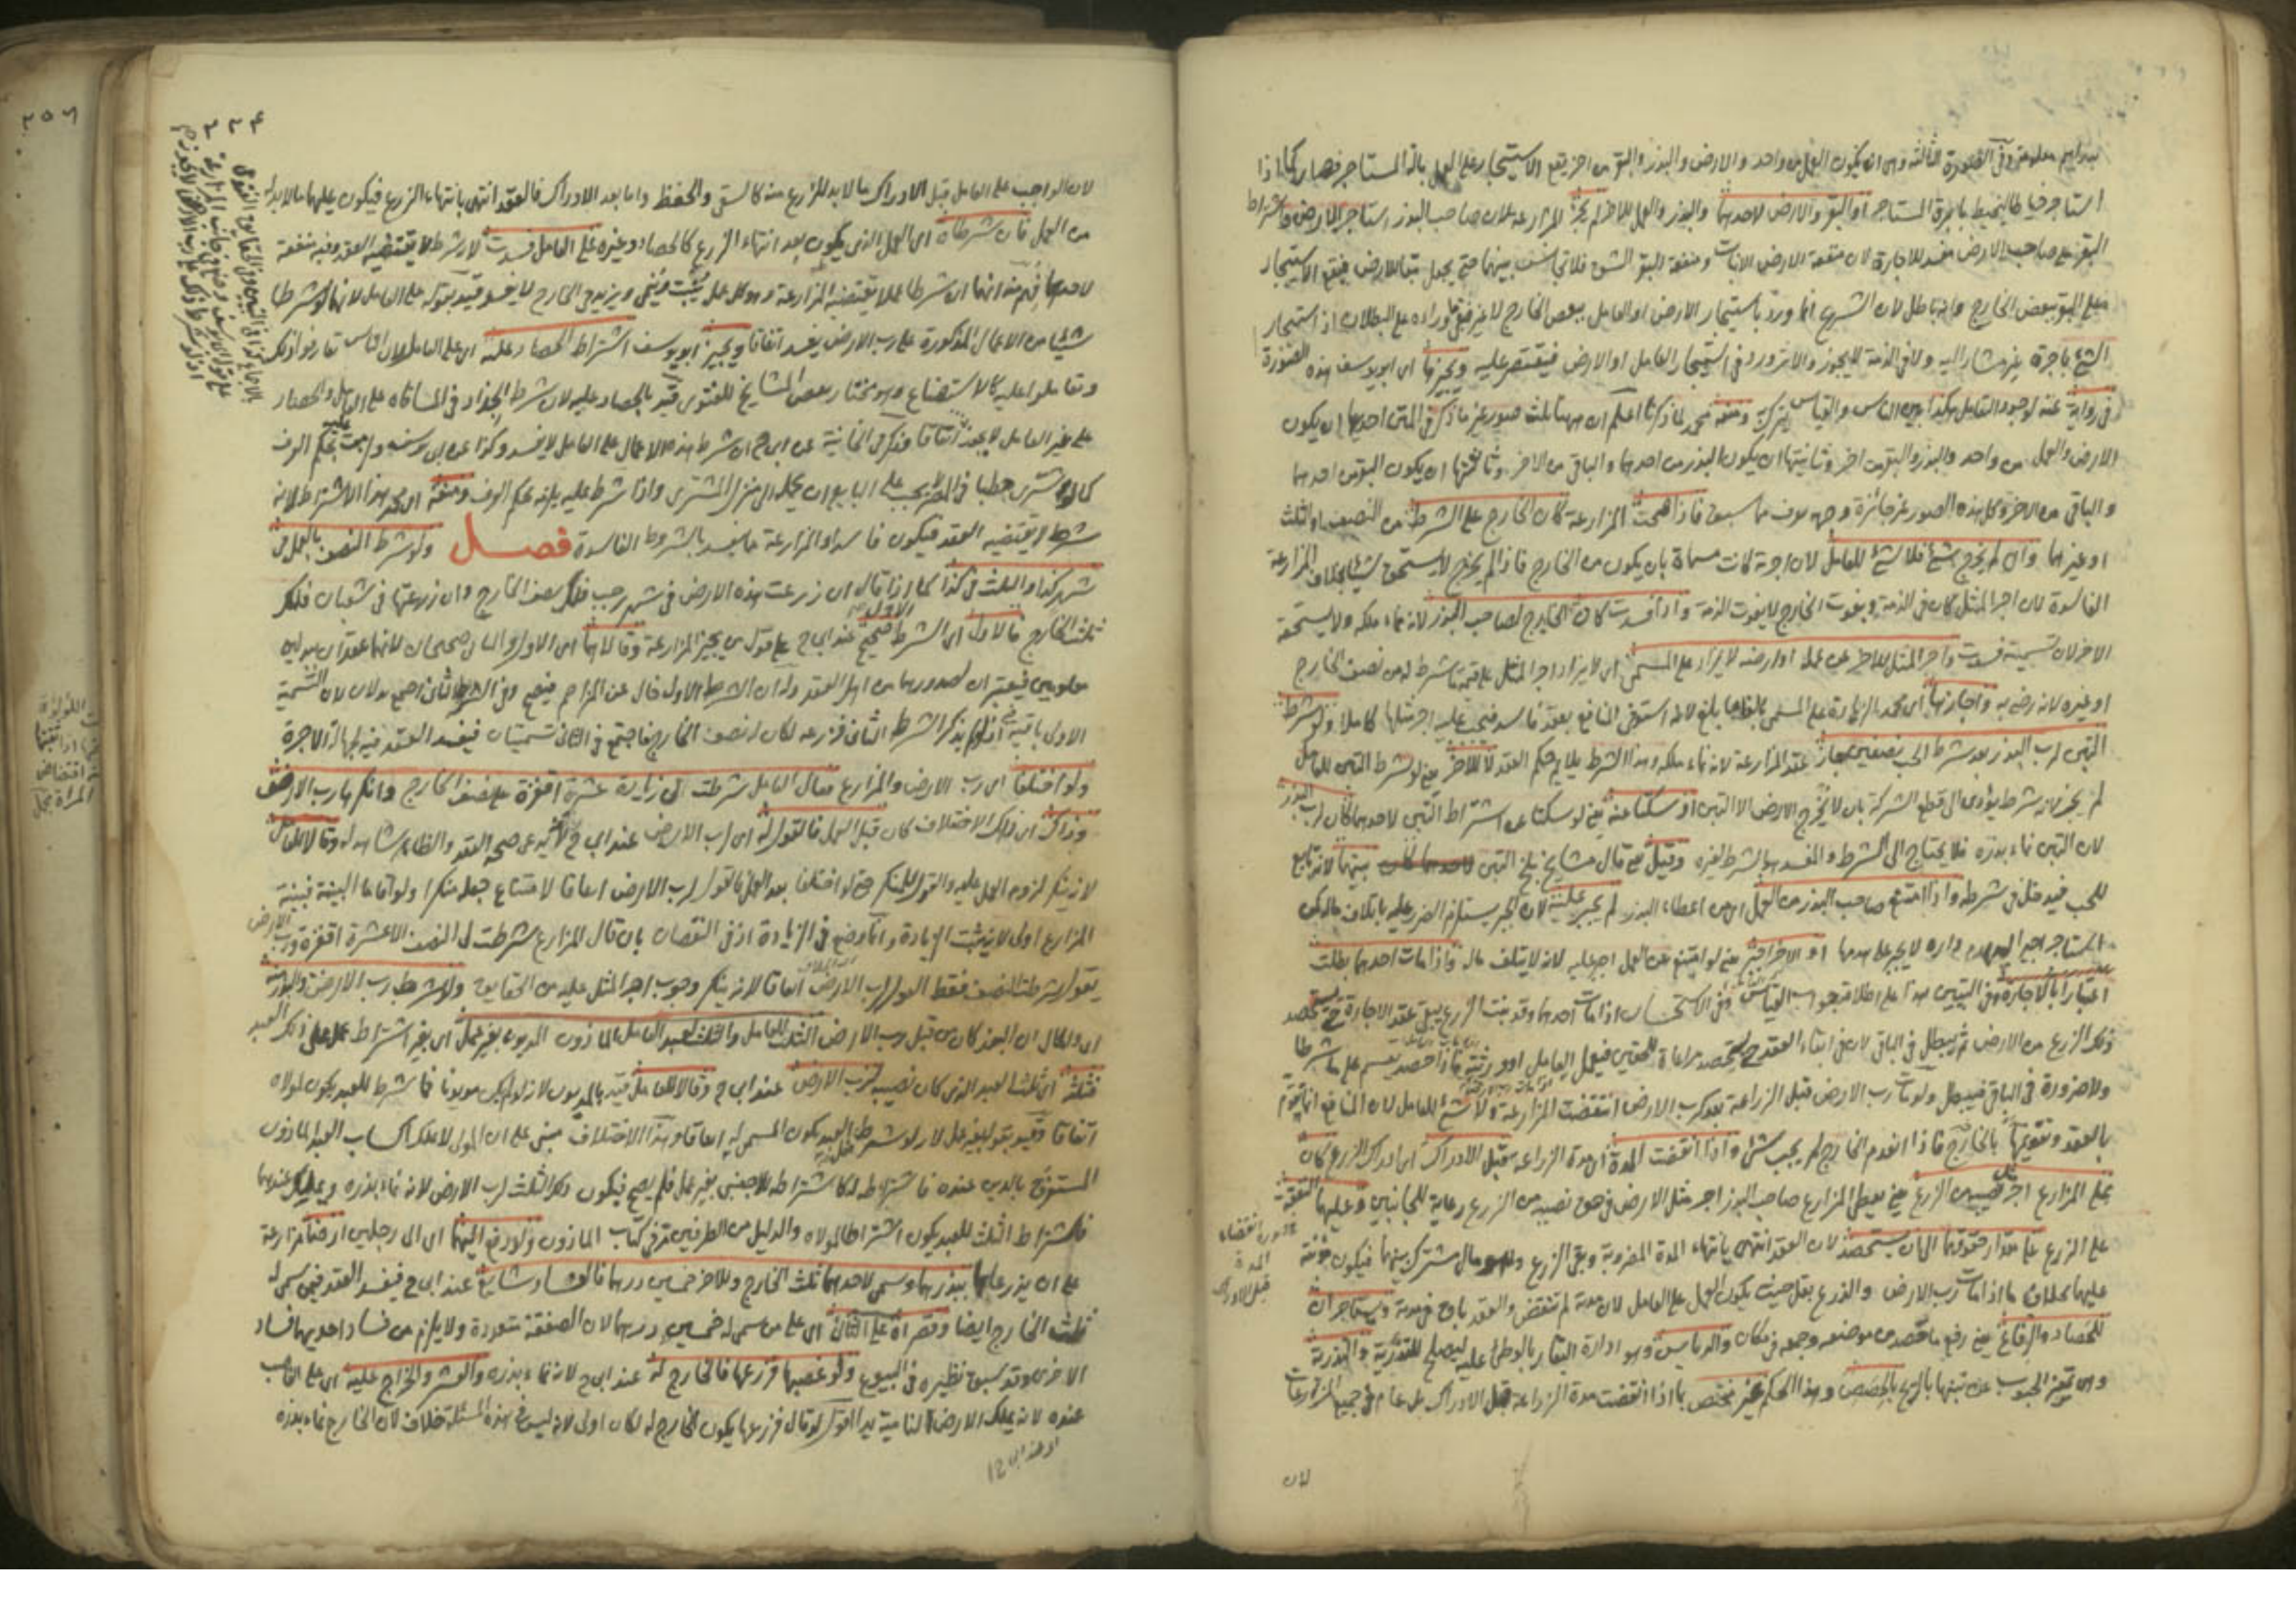 بدراهم معلومة وفي الصورة الثالثة وهي ان يكون العمل من واحد والارض والبذر والبقر من اخر يقع الاستيجار على العمل بالة المستاجر فصار كما اذا
استاجر خياطا ليخيط بابرة المستاجر او البقر والارض لاحدهما والبذر والعمل للاخر لم يجز المزارعة لان صاحب البذر استاجر الارض واشتراط
البقر على صاحب الارض مفسد للاجارة لان منفعة الارض الانبات ومنفعة البقر الشق فلا تجانس بينهما حتى يجعل تبعا للارض فيبقى الاستيجار
البقر ببعض الخارج وانه باطل لان الشرع انما ورد باستيجار الارض او العامل ببعض الخارج لا غير
الشئ باجرة غير مشار اليه ولا في الذمة لا يجوز والاثر ورد في استيجار العامل او الارض فيقتصر عليه ويجيزها اي ابو يوسف هذه الصورة
في رواية عنه لوجود التعامل هكذا بين الناس والقياس يترك ومنعه محمد لما ذكرنا اعلم ان ههنا ثلث صور غير ما ذكر في المتن احديها ان يكون
الارض والعمل من واحد والبذر والبقر من اخر وثانيتها ان يكون البذر من احدهما والباقي من الاخر وثالثتها ان يكون البقر من احدهما
والباقي من الاخر وكل هذه الصور غير جائزة وجهه يعرف مما سبق فاذا صحت المزارعة كان الخارج على الشرط من النصف او الثلث
او غيرهما وان لم يخرج شئ فلا شئ للعامل لان اجرته كانت مسماة بان يكون من الخارج فاذا لم يخرج لا يستحق شيئا بخلاف المزارعة
الفاسدة لان اجر المثل كان في الذمة وبفوت الخارج لا يفوت الذمة واذا فسدت كان الخارج لصاحب البذر لانه نماء ملكه ولا يستحقه
الاخر لان تسمية فسدت واجر المثل للاخر عن عمله او ارضه لا يزاد على المسمى اي لا يزاد اجر المثل على قيمة ما شرط له من نصف الخارج
او غيره لانه رضي به واجازها اي محمد الزيادة على المسمى بالغا ما بلغ لانه استوفى المنافع بعقد فاسد فيجب عليه اجر مثلها كاملا ولو شرط
التبن لرب البذر بعد شرط الحب نصفين جاز عقد المزارعة لانه نماء ملكه وهذا الشرط يلائم حكم العقد لا للاخر يعني لو شرط التبن للعامل
لم يجز لانه شرط يؤدي الى قطع الشركة بان لا يخرج الارض الا التبن او سكتا عنه يعني لو سكتا عن اشتراط التبن لاحدهما كان لرب البذر
لان التبن نماء بذره فلا يحتاج الى الشرط والمفسد هو الشرط لغيره وقيل يعني قال مشايخ بلخ التبن بينهما لانه تابع
للحب فيدخل في شرطه واذا امتنع صاحب البذر من العمل اي من اعطاء البذر لم يجبر عليه لان الجبر يستلزم الضرر عليه باتلاف ماله كمن
استاجر اجيرا ليهدم داره لا يجبر على هدمها او الاخر اجبر يعني لو امتنع عن العمل اجبر عليه لانه لا يتلف ماله واذا مات احدهما بطلت
اعتبارا بالاجارة وفي التبيين هذا على اطلاقه جواب القياس وفي الاستحسان اذا مات احدهما وقد نبت الزرع يبقى عقد الاجارة حتى يستحصد
ذلك الزرع من الارض ثم يبطل في الباقي لان في ابقاء العقد حتى يستحصد مراعاة للحقين فيعمل العامل او ورثته فاذا حصد يقسم على ما شرطا
ولا ضرورة في الباقي فيبطل ولو مات رب الارض قبل الزراعة بعد كرب الارض انتقضت المزارعة ولا شئ للعامل لان المنافع انما تقوم
بالعقد وتقويمها بالخارج فاذا انعدم الخارج لم يجب شئ واذا انقضت المدة اي مدة الزراعة قبل الادراك اي ادراك الزرع كان
على المزارع اجر مثل نصيبه من الزرع يعني يعطي المزارع صاحب البذر اجر مثل الارض في حق نصيبه من الزرع رعاية للجانبين وعليهما النفقة
على الزرع على مقدار حقوقهما الى ان يستحصد لان العقد انتهى بانتهاء المدة المضروبة وبقي الزرع وهو مال مشترك بينهما فيكون مؤنته
عليهما بخلاف ما اذا مات رب الارض والزرع بقل حيث يكون العمل على العامل لان مدته لم تنقض والعقد باق في مدته ويستاجران
للحصاد والرفاع يعني رفع ما حصد من موضعه وجمعه في مكان والدياس وهو ادارة البقار بالوطئ عليه والتذرية
وهي تمييز الحبوب عن تبنها بالريح بالحصص وهذا الحكم غير مختص بما اذا انقضت مدة الزراعة قبل الادراك بل عام في جميع المزارعات
انقضاء
المدة
قبل الادراك
لان
٢٢٤
لان الواجب على العامل قبل الادراك ما لا بد للزرع منه كالسقي والحفظ واما بعد الادراك فالعقد انتهى بانتهاء الزرع فيكون عليهما ما لا بد له
من العمل فان شرطاه اي العمل الذي يكون بعد انتهاء الزرع كالحصاد وغيره على العامل فسدت لانه شرط لا يقتضيه العقد وفيه منفعة
لاحدهما فهم منه انهما ان شرطا عملا يقتضيه المزارعة وهو كل عمل ينبت وينمي ويزيد في الخارج لا يفسد قيد بقوله على العامل لانهما لو شرطا
شيئا من الاعمال المذكورة على رب الارض يفسد اتفاقا ويجيز ابو يوسف اشتراط الحصاد عليه اي على العامل لان الناس تعارفوا ذلك
وتعاملوا عليه كالاستصناع وهو مختار بعض المشايخ للفتوى قيد بالحصاد عليه لان شرط الجذاذ في المساقاة على العامل والحصاد
على غير العامل لا يجوز اتفاقا وذكر في الخانية عن ابي ح ان شرط هذه الاعمال على العامل لا يفسد وكذا عن ابي يوسف بحكم العرف
كما لو اشترى حطبا في المصر يجب على البايع ان يحمله الى منزل المشتري واذا شرط عليه يلزمه بحكم العرف ومنعه اي محمد هذا الاشتراط لانه
شرط لا يقتضيه العقد فيكون فاسدا والمزارعة مما يفسد بالشروط الفاسدة فصل ولو شرط النصف بالعمل في
شهر كذا والثلث في كذا كما اذا قال ان زرعت هذه الارض في شهر رجب فلك نصف الخارج وان زرعتها في شعبان فلك
ثلث الخارج فالاول اي الشرط الاول صحيح عند ابي ح على قول من يجيز المزارعة وقالاهما اي الاول والثاني صحيحان لانهما عقدان ببدلين
معلومين فيعتبران لصدورهما من اهل العقد وله ان الشرط الاول خال عن المزاحم فيصح وفي الشرط الثاني اجتمع بدلان لان التسمية
الاولى باقية اذ لو لم يذكر الشرط الثاني فزرعه لكان له نصف الخارج فاجتمع في الثاني تسميتان فيفسد العقد فيه لجهالة الاجرة
ولو اختلفا اي رب الارض والمزارع فقال العامل شرطت لي زيادة عشرة اقفزة على نصف الخارج وانكرها رب الارض
وذاك اي ذلك الاختلاف كان قبل العمل فالقول له اي لرب الارض عند ابي ح لانه يدعي صحة العقد والظاهر شاهد له وقالا للعامل
لانه ينكر لزوم العمل عليه والقول للمنكر حتى لو اختلفا بعد العمل فالقول لرب الارض اتفاقا لامتناع جعله منكرا ولو اقاما البينة فبينة
المزارع اولى لانه يثبت الزيادة وانما وضع في الزيادة اذ في النقصان بان قال المزارع شرطت لي النصف الا عشرة اقفزة ورب الارض
يقول شرطت النصف فقط القول لرب الارض اتفاقا لانه ينكر وجوب اجر المثل عليه من الحقايق ولو شرط رب الارض والبذر منه
اي والحال ان البذر كان من قبل رب الارض الثلث للعامل والثلث لعبد العامل الماذون المديون بغير عمل اي بغير اشتراط عمل على ذلك العبد
فثلثه اي ثلث العبد الذي كان نصيبه لرب الارض عند ابي ح وقالا للعامل قيد بالمديون لانه لو لم يكن مديونا فما شرط للعبد يكون لمولاه
اتفاقا وقيد بقوله بغير عمل لانه لو شرط عمل العبد يكون المسمى له اتفاقا وهذا الاختلاف مبني على ان المولى لا يملك اكساب العبد الماذون
المستغرق بالدين عنده فاشتراطه له كاشتراطه للاجنبي بغير عمل فلم يصح فيكون ذلك الثلث لرب الارض لانه نماء بذره ويملك عندهما
فاشتراط الثلث للعبد يكون اشتراطا لمولاه والدليل من الطرفين مر في كتاب الماذون ولو دفع اليهما اي الى رجلين ارضا مزارعة
على ان يزرعاها ببذرهما وسمى لاحدهما ثلث الخارج وللاخر خمسين درهما فالفساد شايع عند ابي ح فيفسد العقد فيمن سمى له
ثلث الخارج ايضا وقصراه على الثاني اي على من سمى له خمسين درهما لان الصفقة متعددة ولا يلزم من فساد احديهما فساد
الاخرى وقد سبق نظيره في البيوع ولو غصبها فزرعها فالخارج له عند ابي ح لانه نماء بذره والعشر والخراج عليه اي على الغاصب
عنده لانه يملك الارض النامية يدا اقول لو قال فزرعها يكون الخارج له لكان اولى لانه ليس في هذه المسئلة خلاف لان الخارج نماء بذره
٢٥٦